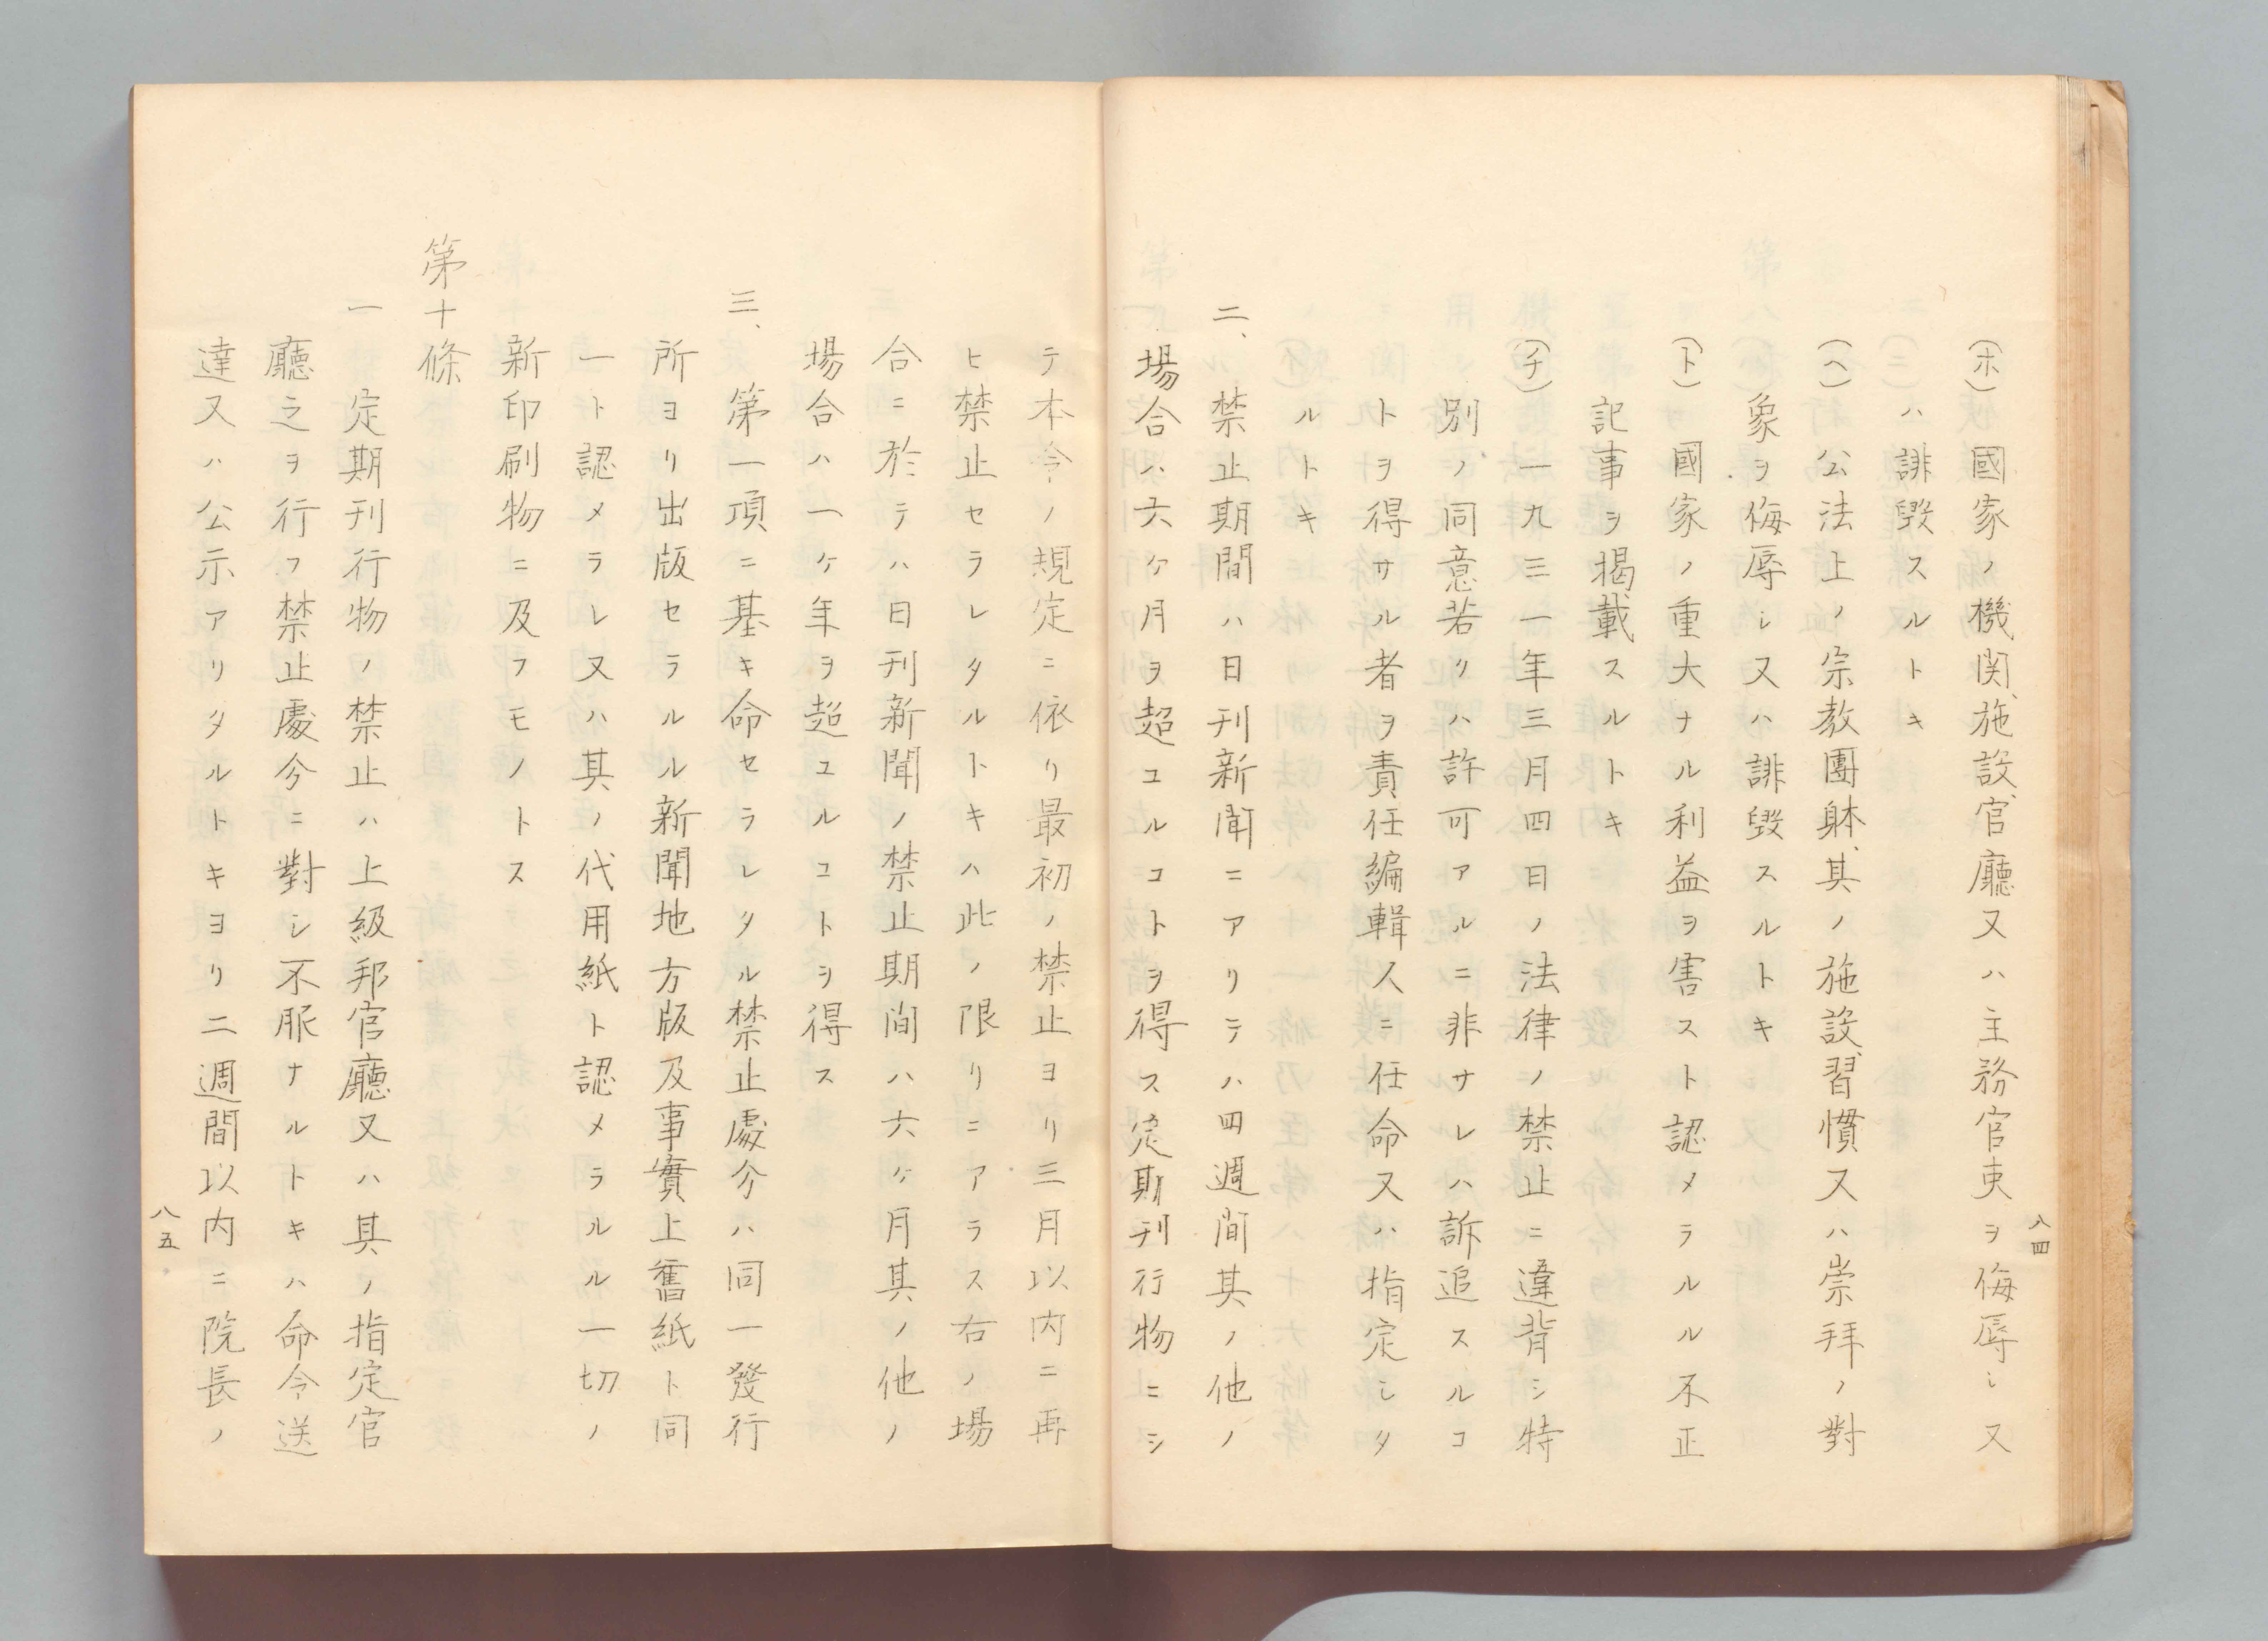 八四
(ホ) 國家ノ機関、施設、官廳又ハ主務官吏ヲ侮辱シ又
ハ誹毀スルトキ
(ヘ) 公法上ノ宗教團躰、其ノ施設、習慣又ハ崇拜ノ對
象ヲ侮辱シ又ハ誹毀スルトキ
(ト) 國家ノ重大ナル利益ヲ害スト認メラルル不正
記事ヲ掲載スルトキ
(チ) 一九三一年三月四日ノ法律ノ禁止ニ違背シ特
別ノ同意若クハ許可アルニ非サレハ訴追スルコ
トヲ得サル者ヲ責任編輯人ニ任命又ハ指定シタ
ルトキ
二、禁止期間ハ日刊新聞ニアリテハ四週間其ノ他ノ
場合ハ六ケ月ヲ超ユルコトヲ得ス定期刊行物ニシ
テ本令ノ規定ニ依リ最初ノ禁止ヨリ三月以内ニ再
ヒ禁止セラレタルトキハ此ノ限リニアラス右ノ場
合ニ於テハ日刊新聞ノ禁止期間ハ六ケ月其ノ他ノ
場合ハ一ケ年ヲ超ユルコトヲ得ス
三、第一項ニ基キ命セラレタル禁止處分ハ同一發行
所ヨリ出版セラルル新聞地方版及事實上舊紙ト同
一ト認メラレ又ハ其ノ代用紙ト認メラルル一切ノ
新印刷物ニ及フモノトス
第十條
一 定期刊行物ノ禁止ハ上級邦官廳又ハ其ノ指定官
廳之ヲ行フ禁止處分ニ對シ不服ナルトキハ命令送
達又ハ公示アリタルトキヨリ二週間以内ニ院長ノ
八五